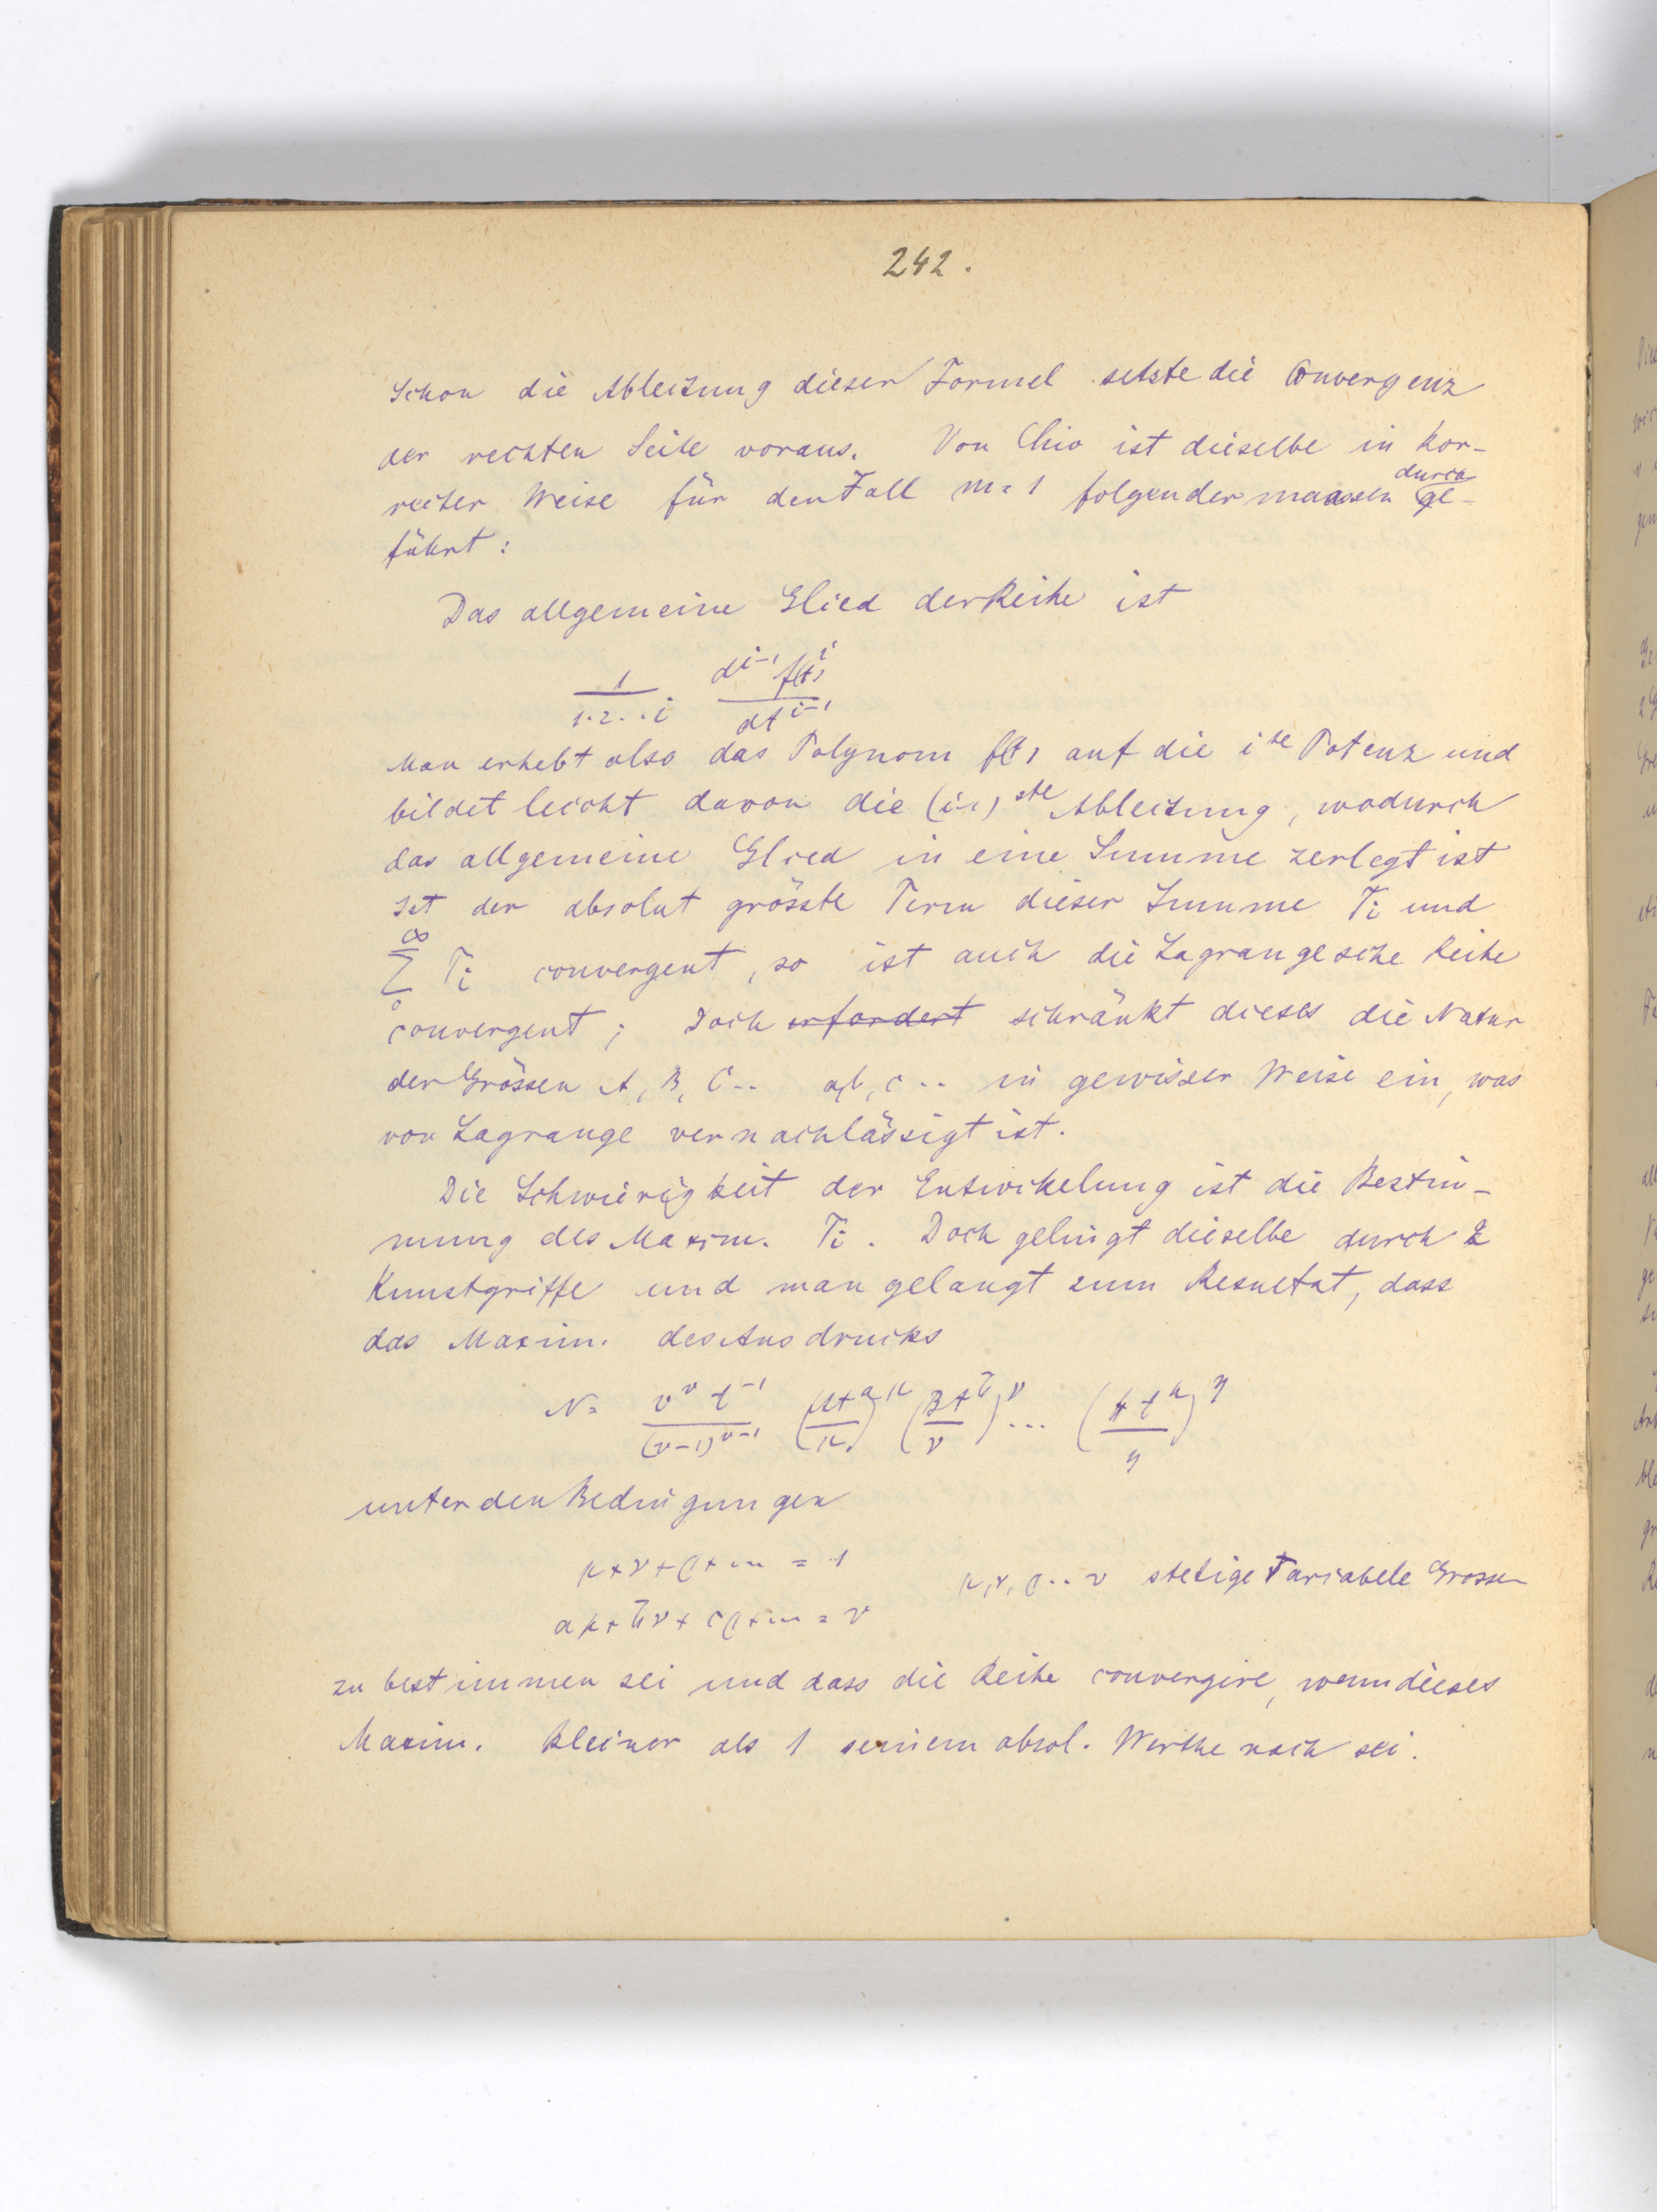 242.
Schon die Ableitung dieser Formel setzte die Convergenz
der rechten Seite voraus. Von Chio ist dieselbe in kor-
recter Weise für den Fall m=1 folgendermaassen durchge-
führt:
Das allgemeine Glied der Reihe ist
1/(1·2···i) d^{i-1} f(t)^i / dt^{i-1}
Man erhebt also das Polynom f(t) auf die i^{te} Potenz und
bildet leicht davon die (i-1)^{ste} Ableitung, wodurch
das allgemeine Glied in eine Summe zerlegt ist
Ist der absolut grösste Term dieser Summe T_i und
∑_0^∞ T_i convergent, so ist auch die Lagrangesche Reihe
convergent; Doch erfordert schränkt dieses die Natur
der Grössen A, B, C.. a, b, c .. in gewisser Weise ein, was
von Lagrange vernachlässigt ist.
Die Schwierigkeit der Entwickelung ist die Bestim-
mung des Maxim. T_i. Doch gelingt dieselbe durch 2
Kunstgriffe und man gelangt zum Resultat, dass
das Maxim. des Ausdrucks
N = v^v t^{-1} / (v-1)^{v-1} (At^a/μ)^μ (Bt^b/ν)^ν ... (Ht^h/η)^η
unter den Bedingungen
μ+ν+ρ+... = 1 μ, ν, ρ... v stetige variabele Grossen
aμ+bν+cρ+... = v
zu bestimmen sei und dass die Reihe convergire, wenn dieses
Maxim. kleiner als 1 seinem absol. Werthe nach sei.